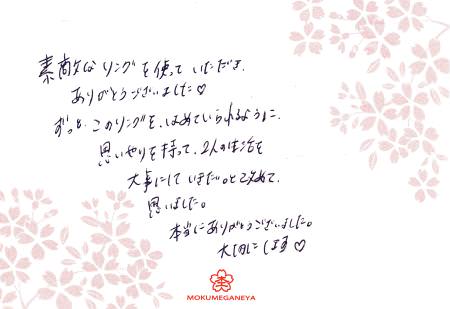 素敵なリングを使っていただき、
ありがとうございました♡
ずっと、このリングを、はめていられるように、
思いやりを持って、2人の生活を
大事にしていきたい。と改めて、
思いました。
本当にありがとうございました。
大切にします♡
MOKUMEGANEYA